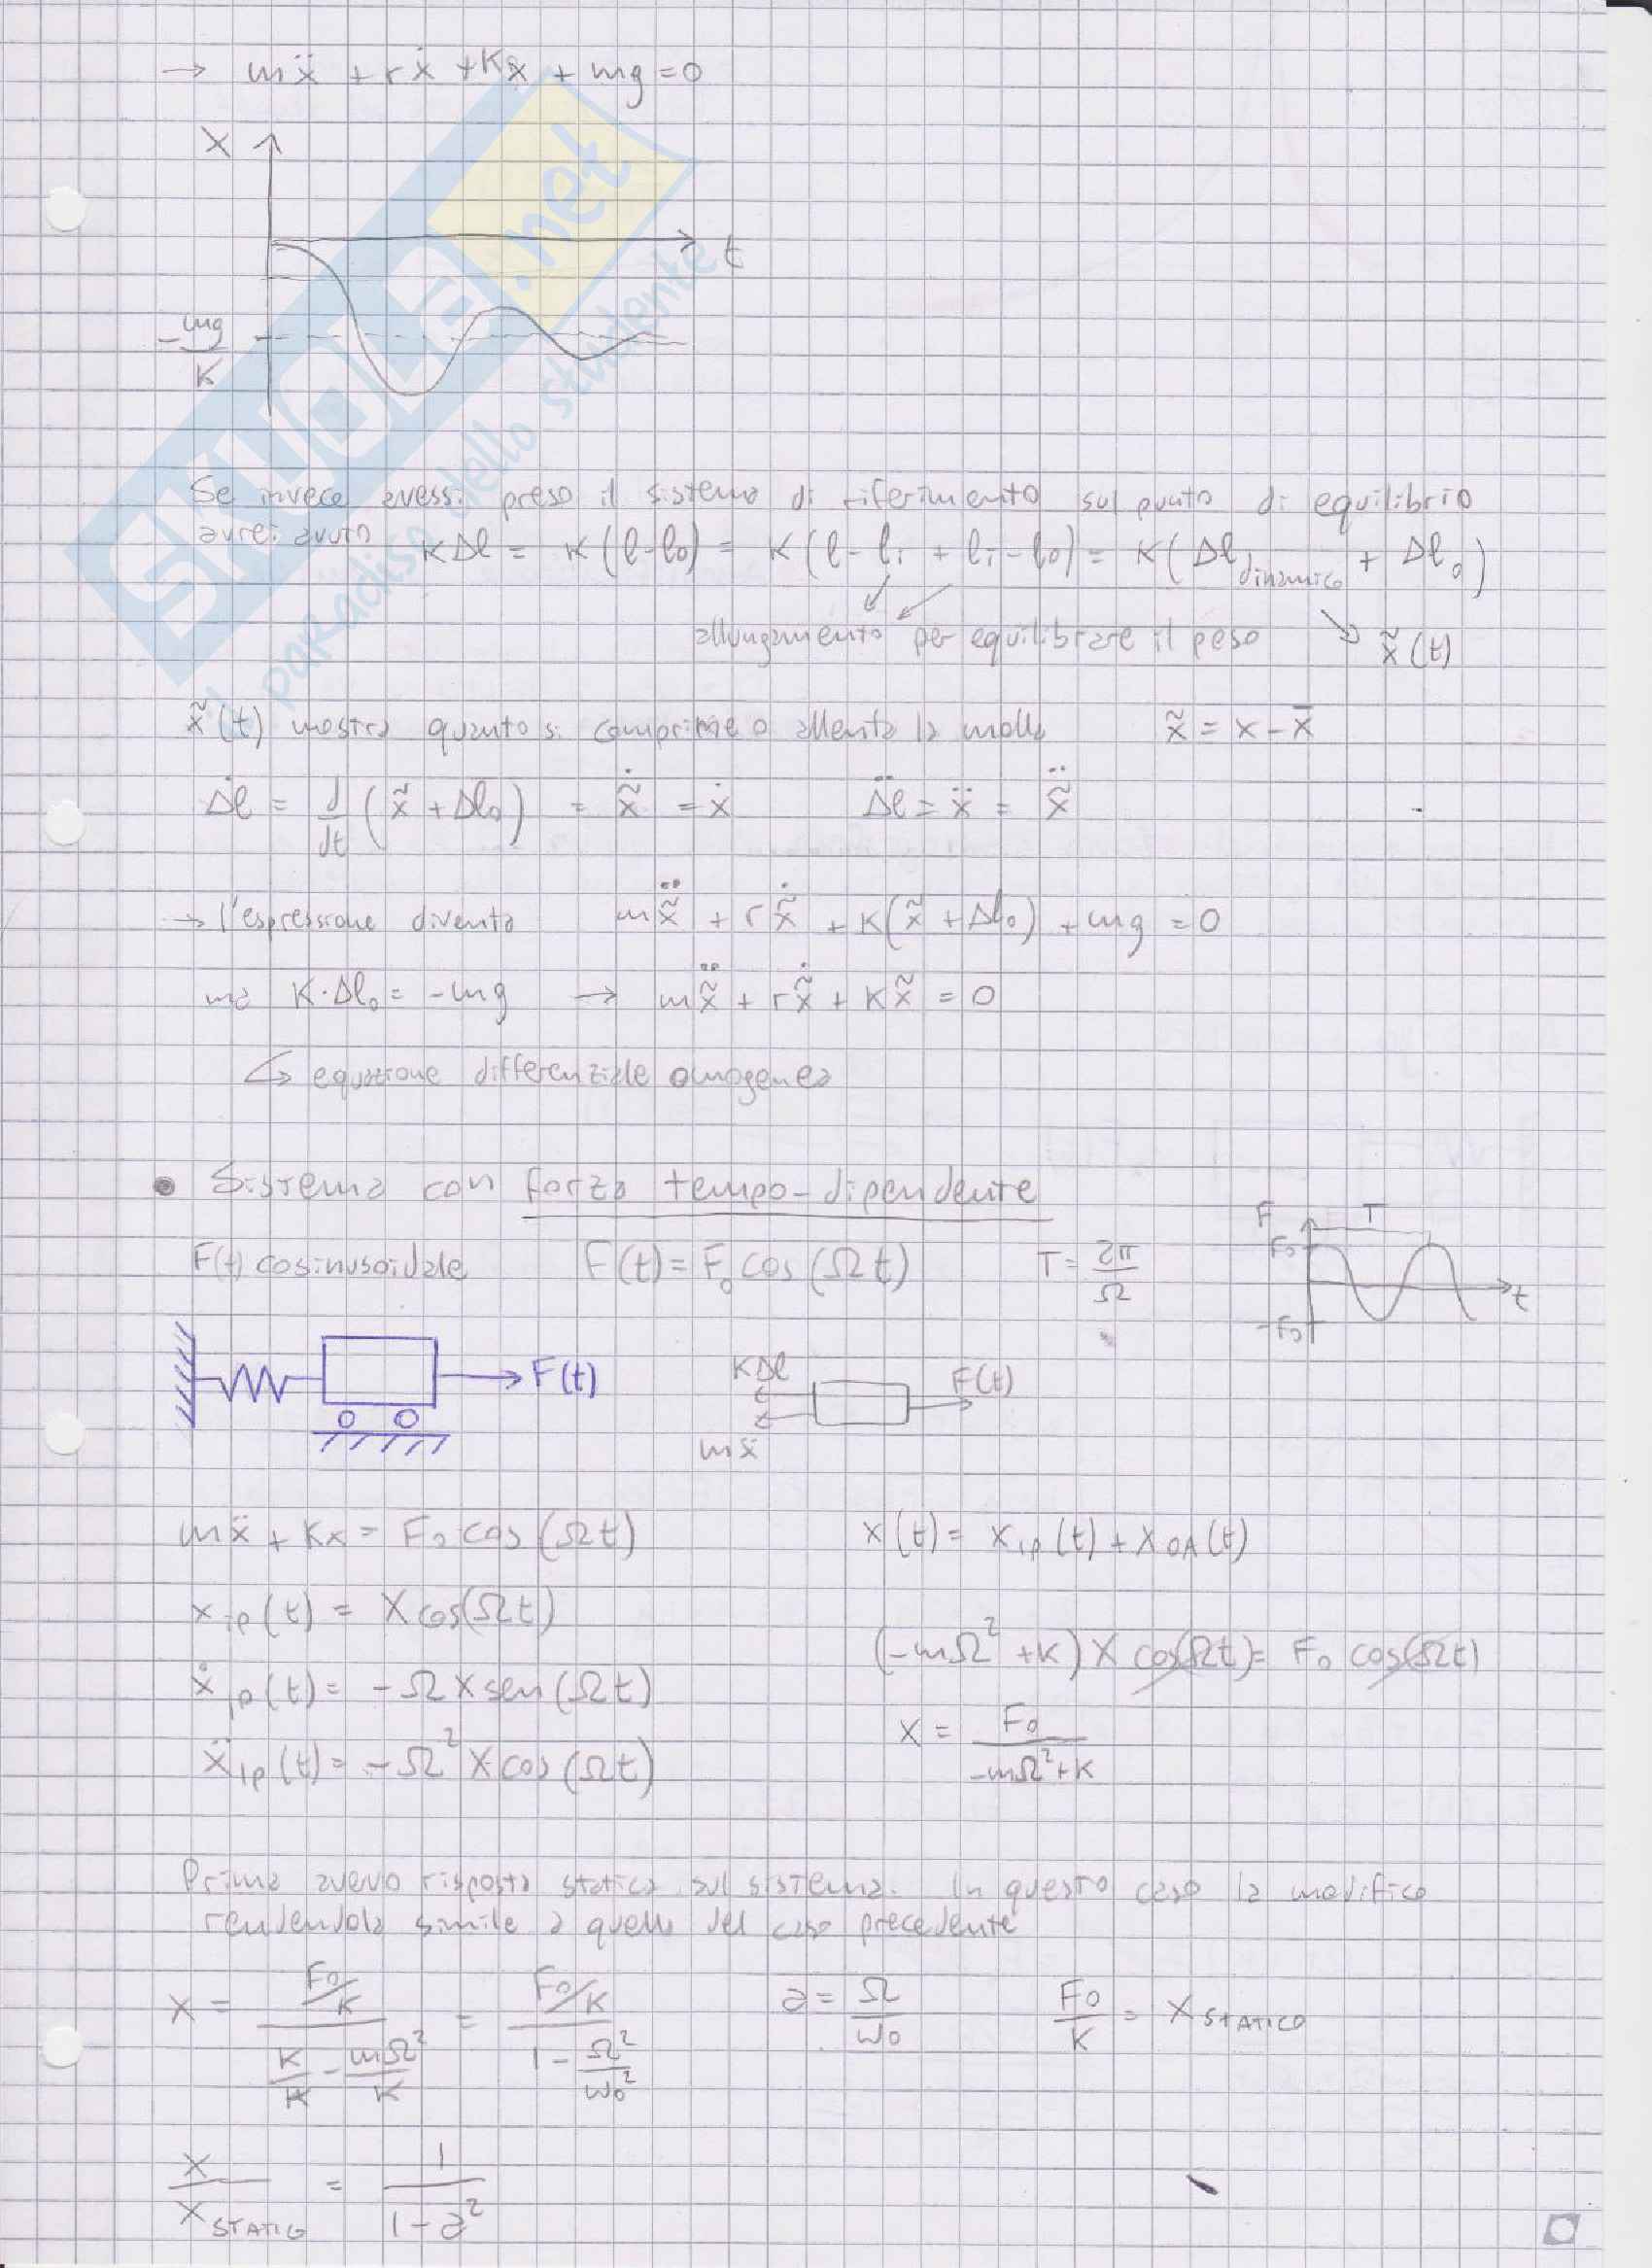 → mẍ + rẋ + Kx + mg = 0
X
t
- mg/K
SKUOLA.net
il paradiso dello studente
Se invece avessi preso il sistema di riferimento sul punto di equilibrio
avrei avuto KΔl = K(l-l₀) = K(l-lᵢ + lᵢ-l₀) = K(Δl dinamico + Δl₀)
allungamento per equilibrare il peso
x̃(t)
x̃(t) mostra quanto si comprime o allenta la molla x̃ = x - x̄
Δl̇ = d/dt (x̃ + Δl₀) = x̃̇ = ẋ Δl̈ = ẍ = x̃̈
→ l'espressione diventa mx̃̈ + rx̃̇ + K(x̃ + Δl₀) + mg = 0
ma K·Δl₀ = -mg → mx̃̈ + rx̃̇ + Kx̃ = 0
↳ equazione differenziale omogenea
• Sistema con forza tempo-dipendente
F(t) cosinusoidale F(t) = F₀ cos(Ωt) T = 2π/Ω
F
T
F₀
-F₀
t
F(t)
KΔl
F(t)
mẍ
mẍ + Kx = F₀ cos(Ωt) x(t) = x_IP(t) + x_OA(t)
x_IP(t) = X cos(Ωt)
(-mΩ² + K) X cos(Ωt) = F₀ cos(Ωt)
ẋ_IP(t) = -Ω X sen(Ωt)
X = F₀/(-mΩ²+K)
ẍ_IP(t) = -Ω² X cos(Ωt)
Prima avevo risposta statica sul sistema. In questo caso la modifico
rendendola simile a quella del caso precedente
X = (F₀/K)/(K/K - mΩ²/K) = (F₀/K)/(1 - Ω²/ω₀²) a = Ω/ω₀ F₀/K = X STATICO
X/X STATICO = 1/(1-a²)